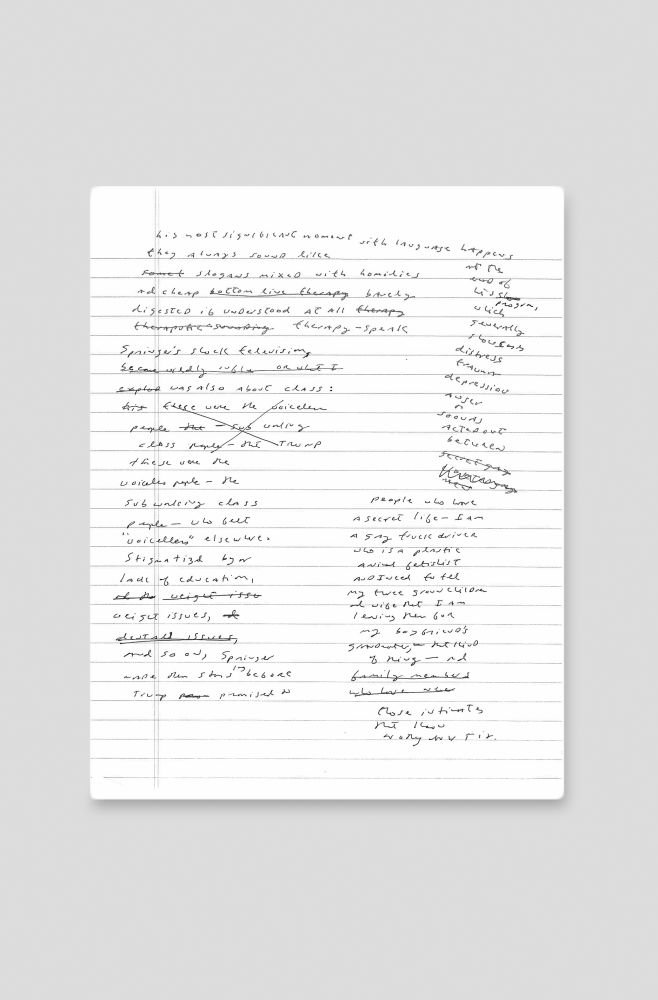 his most significant moment with language happens
at the
end of
his show
program,
which
generally
showcases
distress
trauma
depression
anger
n
sounds
acted out
between
secret gay
people who have
a secret life – I am
a gay truck driver
who is a plastic
animal fetishist
and I need to tell
my three grown children
and wife that I am
leaving them for
my boyfriend's
grandmother, – that kind
of thing – and
family members
who have when
close intimates
that know
really
they always sound like
slogans mixed with homilies
and cheap bottom line therapy barely
digested if understood at all therapy
therapeutic sounding therapy-speak
Springer's shock television,
became wildly or what I
explod was also about class:
his these were the voiceless
people the – sub working
class people – the Trump
these were the
voiceless people – the
sub working class
people – who felt
"voiceless" elsewhere.
Stigmatized by
lack of education,
weight issu
weight issues,
dental issues,
and so on, Springer
made them stars before
Trump promised to